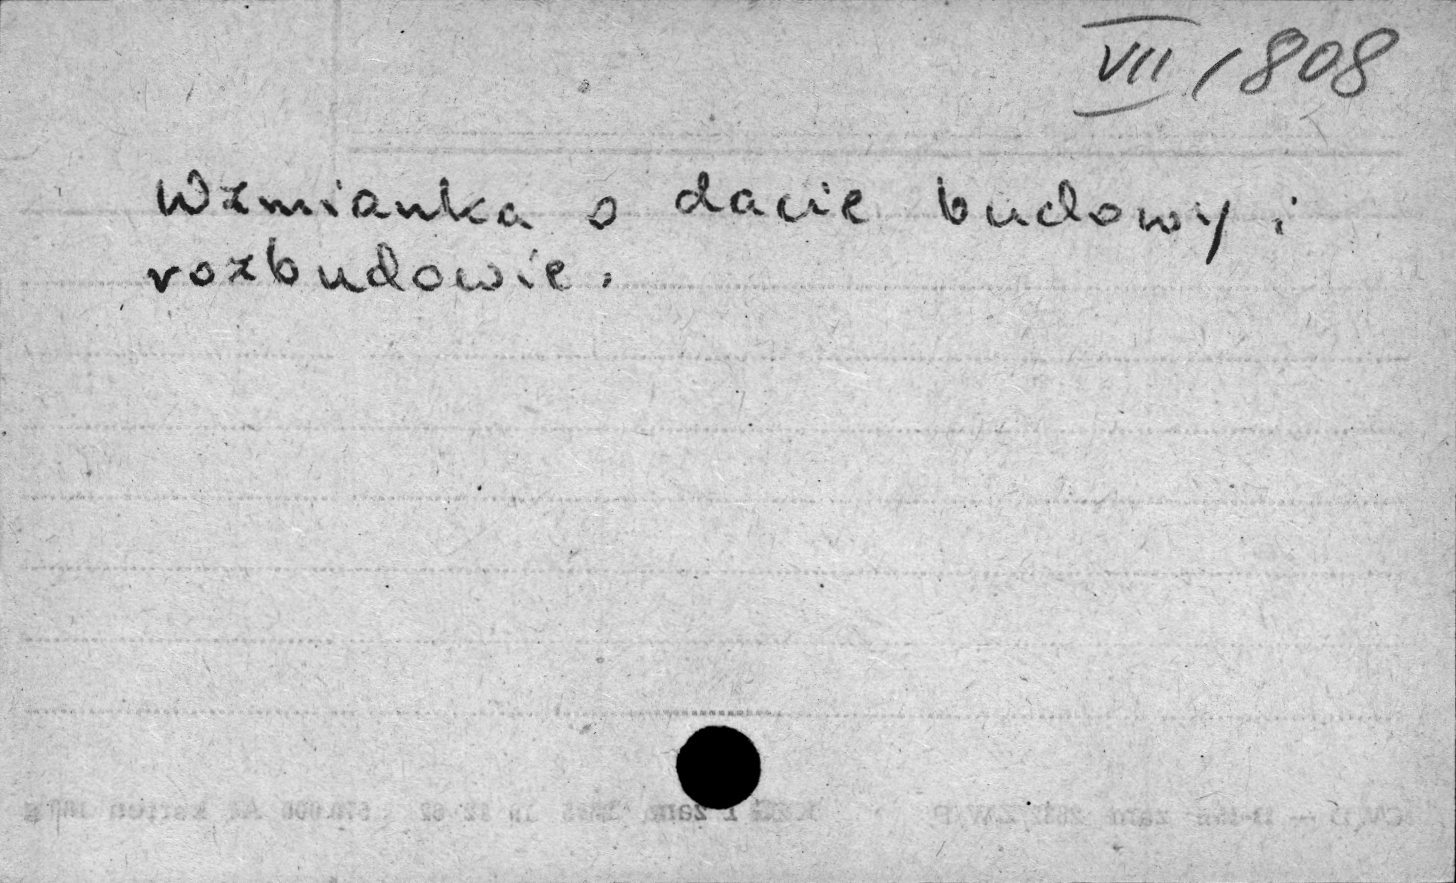 VII / 808
Wzmianka o dacie budowy i
rozbudowie.